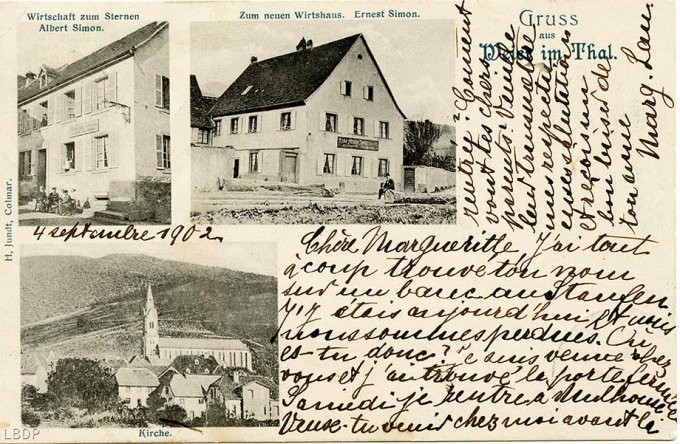 Wirtschaft zum Sternen
Albert Simon.
Zum neuen Wirtshaus. Ernest Simon.
Gruss
aus
Weier im Thal.
H. Jundt, Colmar.
4 septembre 1902.
Chère Margueritte J'ai tout
à coup trouvé ton nom
sur un banc au Staufen
J'y étais aujourd'hui et nous
nous sommes perdues. Où
es-tu donc? je suis venue chez
vous et j'ai trouvé la porte fermée
Samedi je rentre à Mulhouse
Veux-tu venir chez moi avant la
rentrée? Comment
vont tes chers
parents? Veuille
leur transmettre
mes respectueuses
salutations
et reçois un
bon baiser de
ton amie
Marg.
Kirche.
LBDP